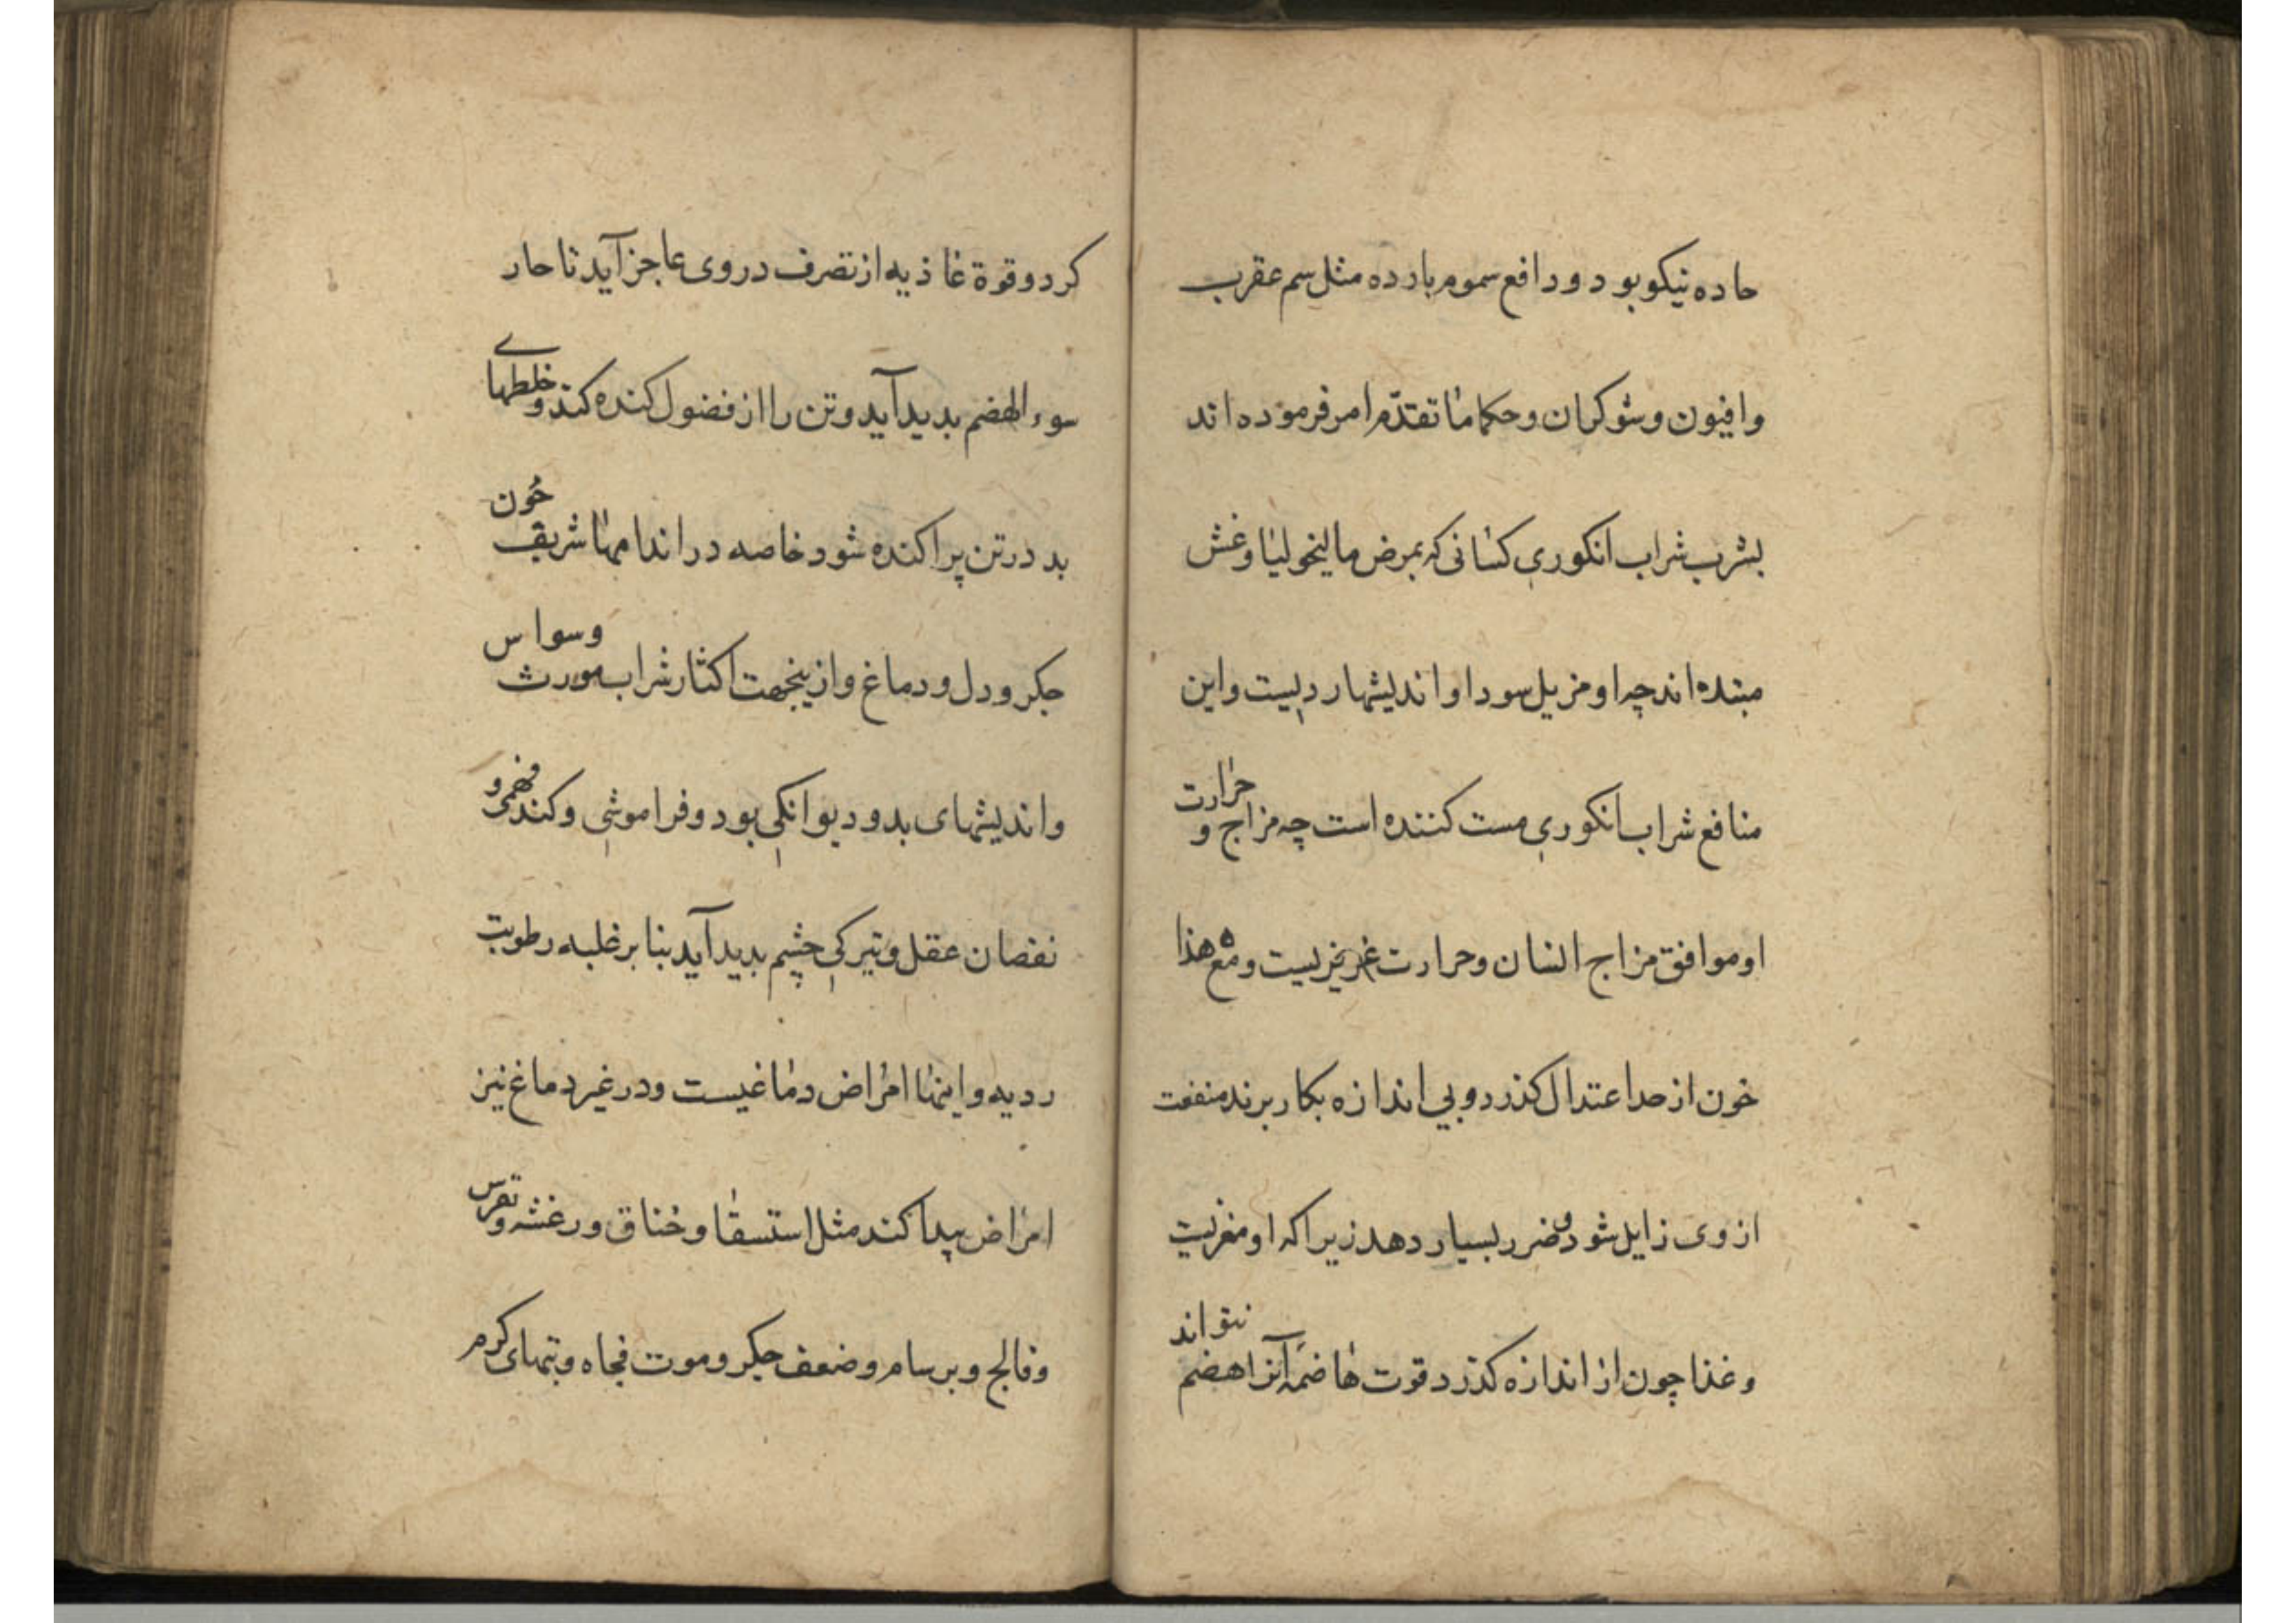 حاده نیکو بود و دافع سموم بارده مثل سم عقرب
وافیون و شوکران و حکما ما تقدّم امر فرموده اند
بشرب شراب انکوری کسانی که بمرض مالیخولیا و غش
مبتده اند چه او مزیل سودا و اندیشهار دیست و این
منافع شراب انکوری مست کننده است چه مزاج و حرارت
او موافق مزاج انسان و حرارت غریزیست و مع هذا
خون از حد اعتدال کذرد و بی اندازه بکار برند منفعت
از وی زایل شود و ضرر بسیار دهد زیرا که او مغزیست
و غذا چون از اندازه کذرد قوت هاضمه آنرا هضم نتواند
کرد و قوة غاذیه از تصرف در وی عاجز آید تا حار
سوء الهضم بدید آید و تن را از فضول کنده کند و خلطهای
بد در تن پراکنده شود خاصه در اندامها شریف خون
جکر و دل و دماغ و ازینجهت اکثار شراب مورث وسواس
و اندیشهای بد و دیوانکی بود و فراموشی و کندفهمی و
نقصان عقل و تیرکی چشم بدید آید بنا بر غلبه رطوبت
ردیه و اینها امراض دماغیست و در غیر دماغ نیز
امراض پیدا کند مثل استسقا و خناق و رعشه و نقرس
و فالج و برسام و ضعف جکر و موت فجاه و تبهای کرم